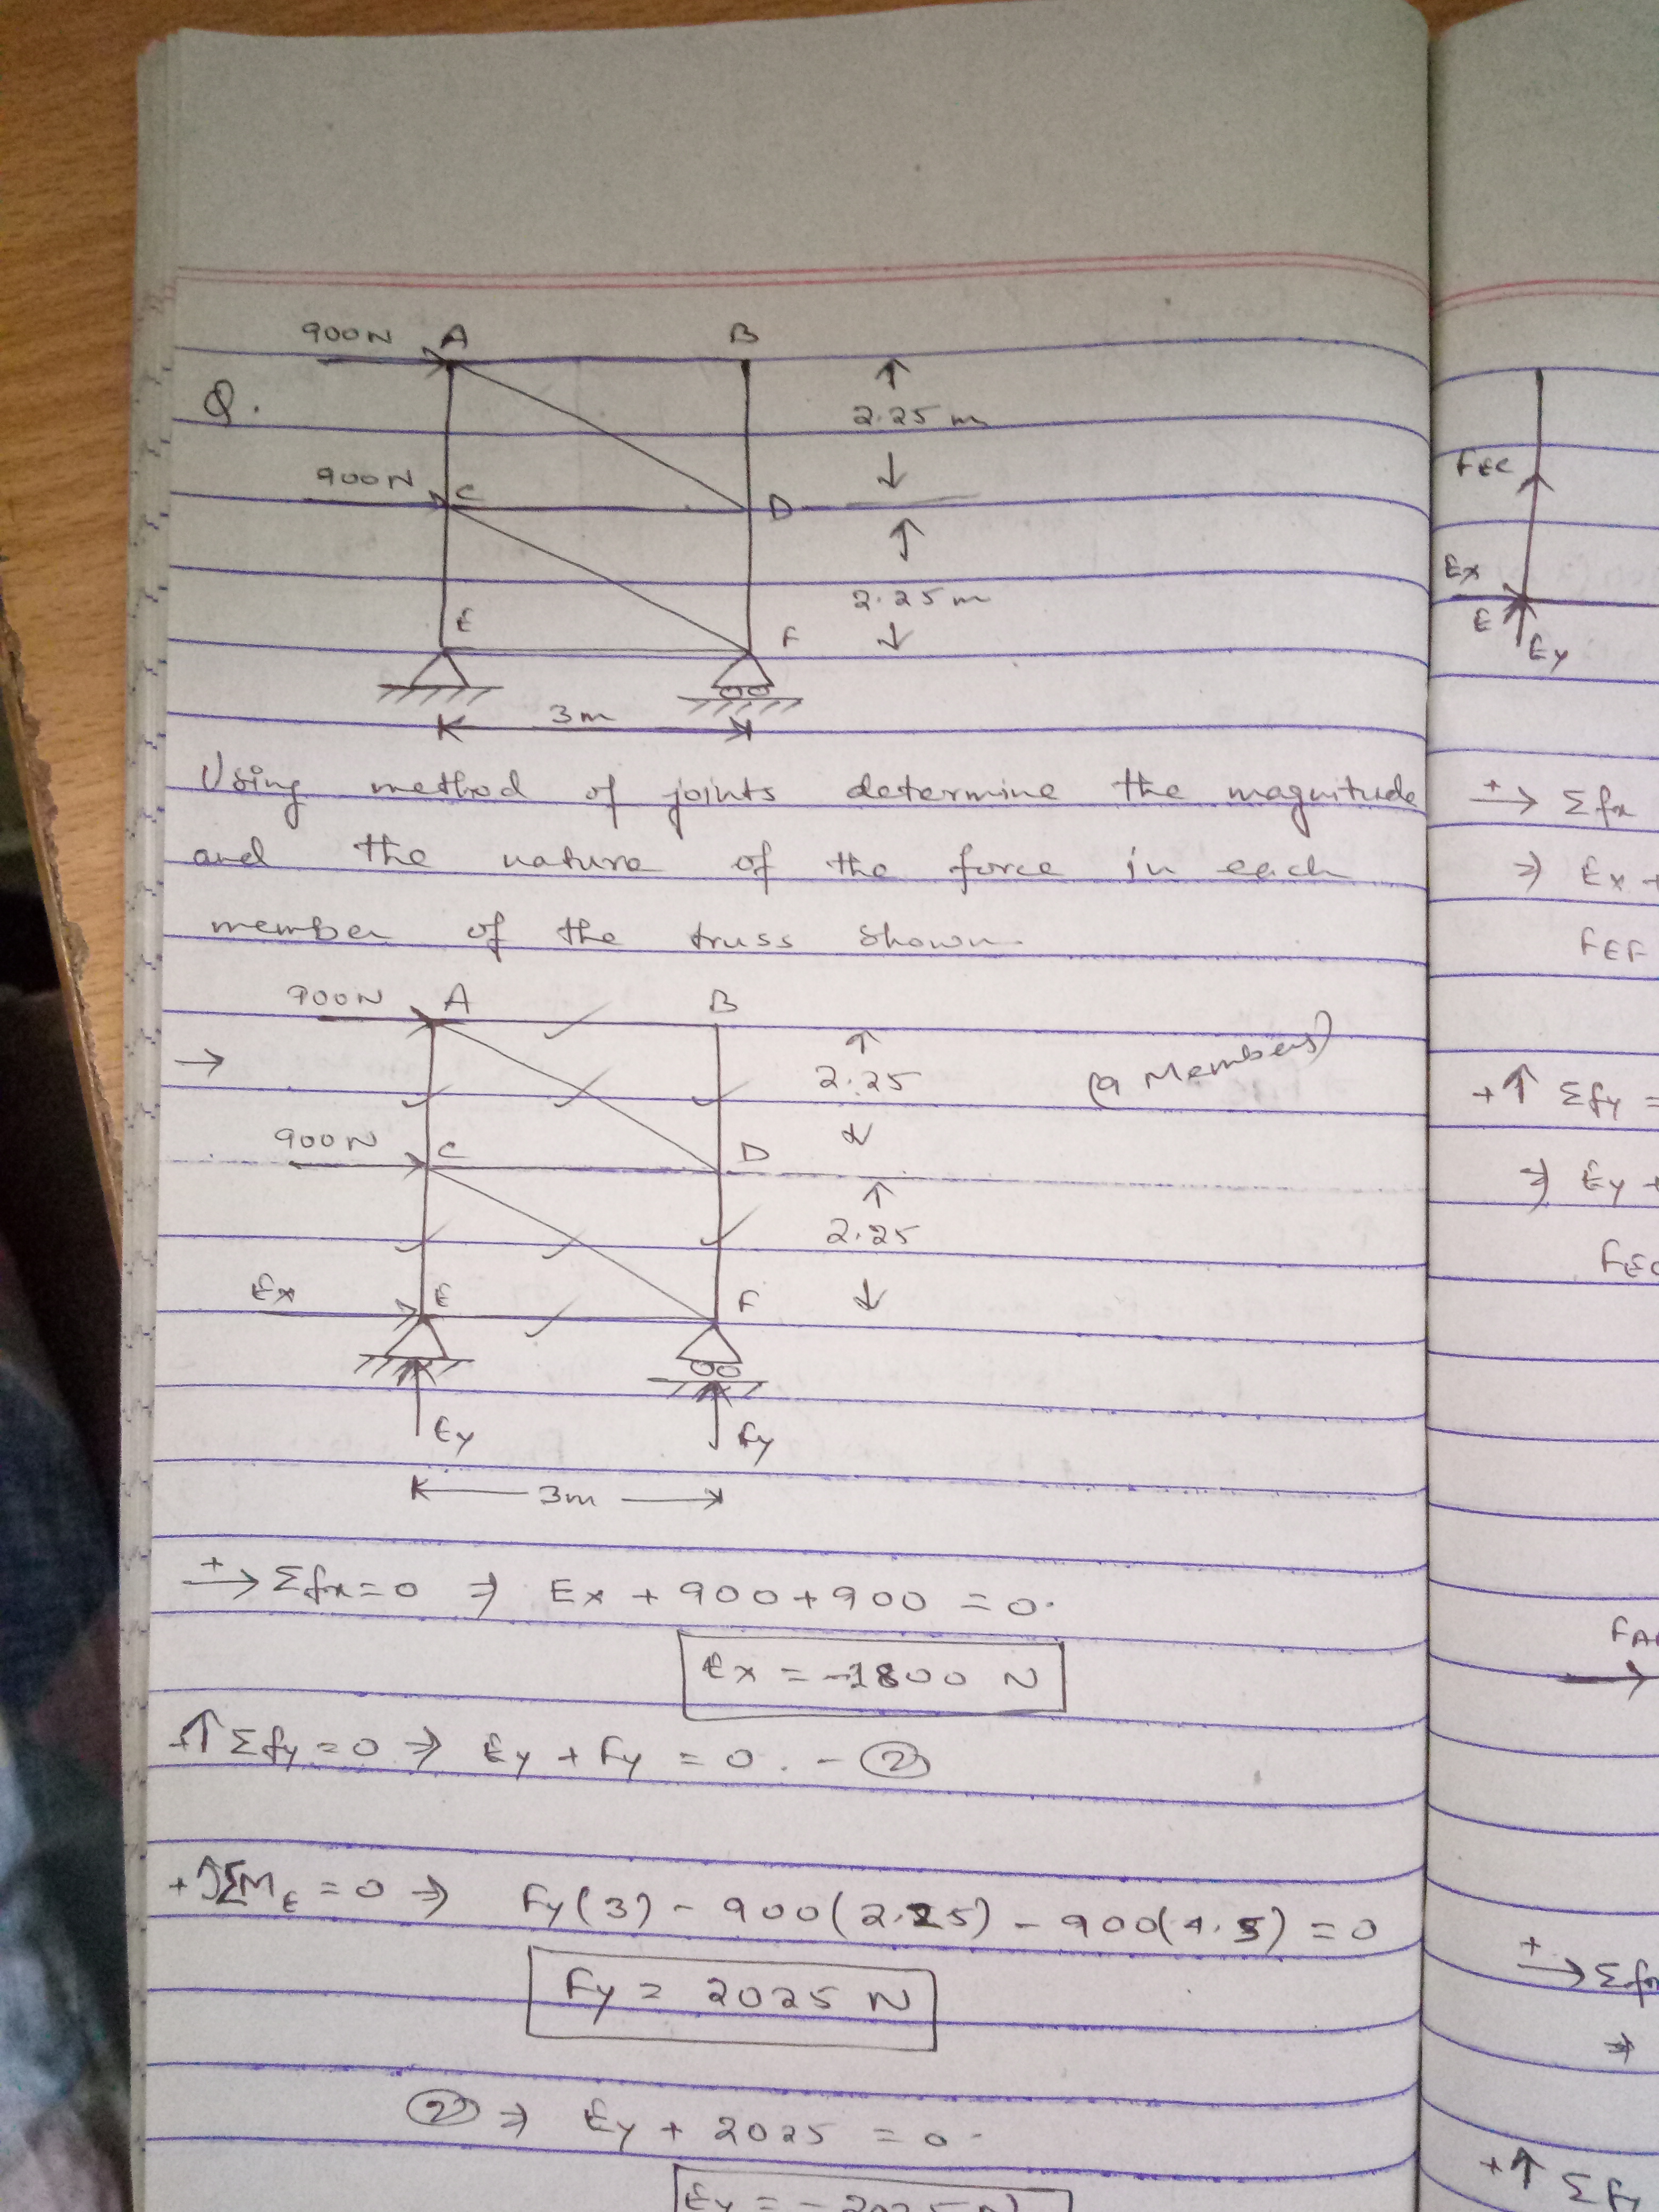 900N A B
Q.
2.25 m
900N C D
2.25 m
E F
3m
Using method of joints determine the magnitude
and the nature of the force in each
member of the truss shown.
900N A B
→ 2.25 (9 Members)
900N C D
2.25
Ex E F
Ey Fy
3m
+→ Σfx=0 ⇒ Ex + 900+900 = 0.
Ex = -1800 N
+↑ Σfy=0 ⇒ Ey + Fy = 0. - ②
+↺ΣM_E = 0 ⇒ Fy(3) - 900(2.25) - 900(4.5) = 0
Fy = 2025 N
② ⇒ Ey + 2025 = 0.
Ey = - 2025 N
FEC
Ex
E
Ey
+→ Σfx
⇒ Ex +
FEF
+↑ Σfy =
⇒ Ey +
FEC
+→ Σfx
⇒
+↑ Σfy